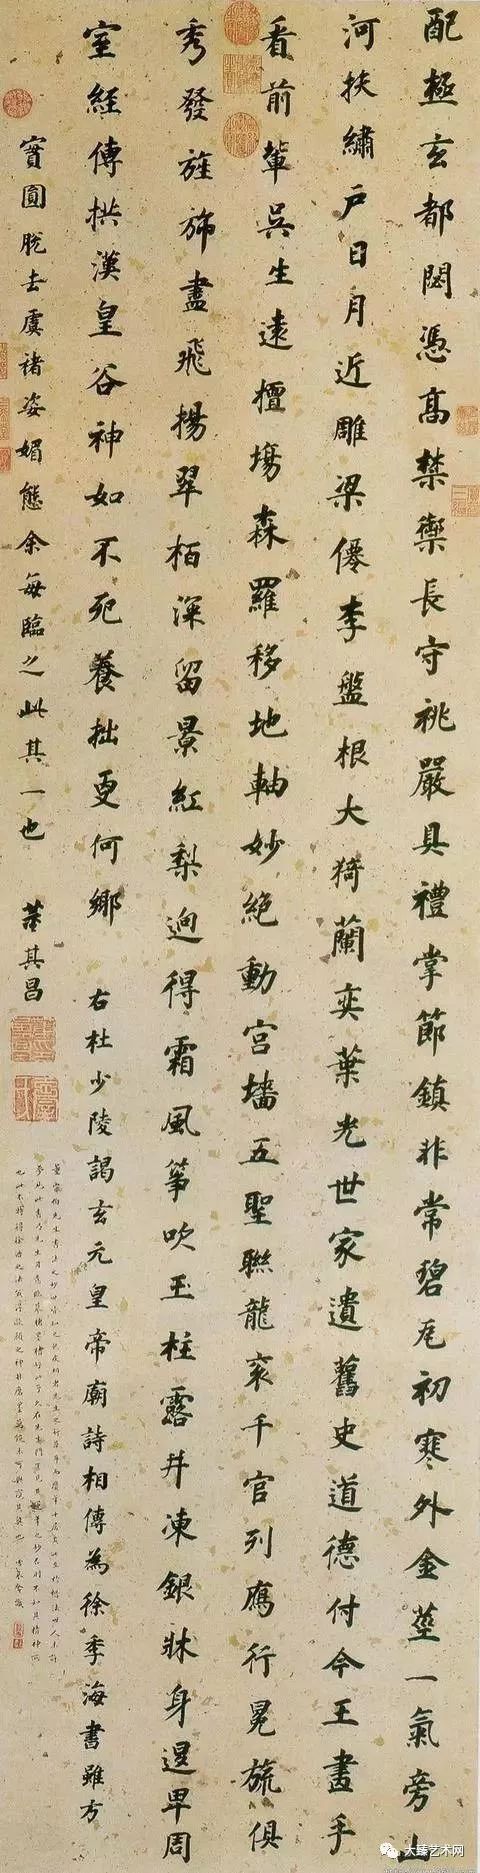 配極玄都閟憑高禁禦長守祧嚴具禮掌節鎮非常碧瓦初寒外金莖一氣旁山
河扶繡戶日月近雕梁僊李盤根大猗蘭奕葉光世家遺舊史道德付今王畫手
看前輩吳生遠擅場森羅移地軸妙絕動宮墻五聖聯龍袞千官列鴈行冕旒俱
秀發旌旆盡飛揚翠栢深留景紅梨迥得霜風箏吹玉柱露井凍銀牀身退卑周
室經傳拱漢皇谷神如不死養拙更何鄉 右杜少陵謁玄元皇帝廟詩相傳為徐季海書雖方
實圓脫去虞褚姿媚態余每臨之此其一也 董其昌
大臻艺术网